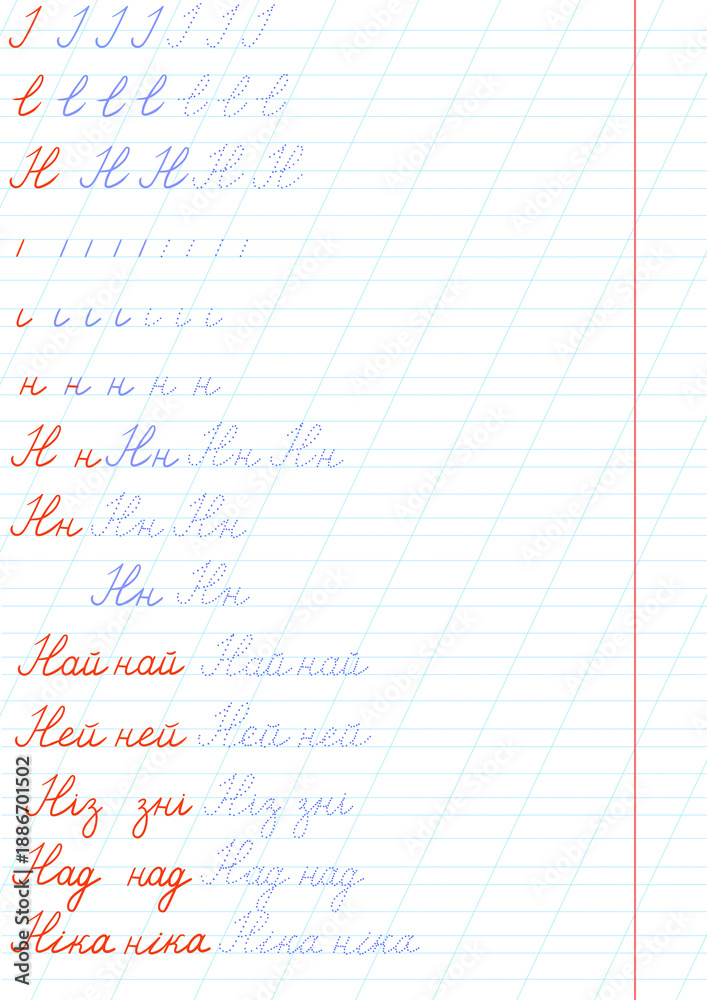 Н Н Н Н Н
н н н н н
Н н Нн Нн Нн
Нн Нн Нн
Нн Нн
Най най Най най
Ней ней Ней ней
Ніз зні Ніз зні
Над над Над над
Ніка ніка Ніка ніка
Adobe Stock | #1886701502